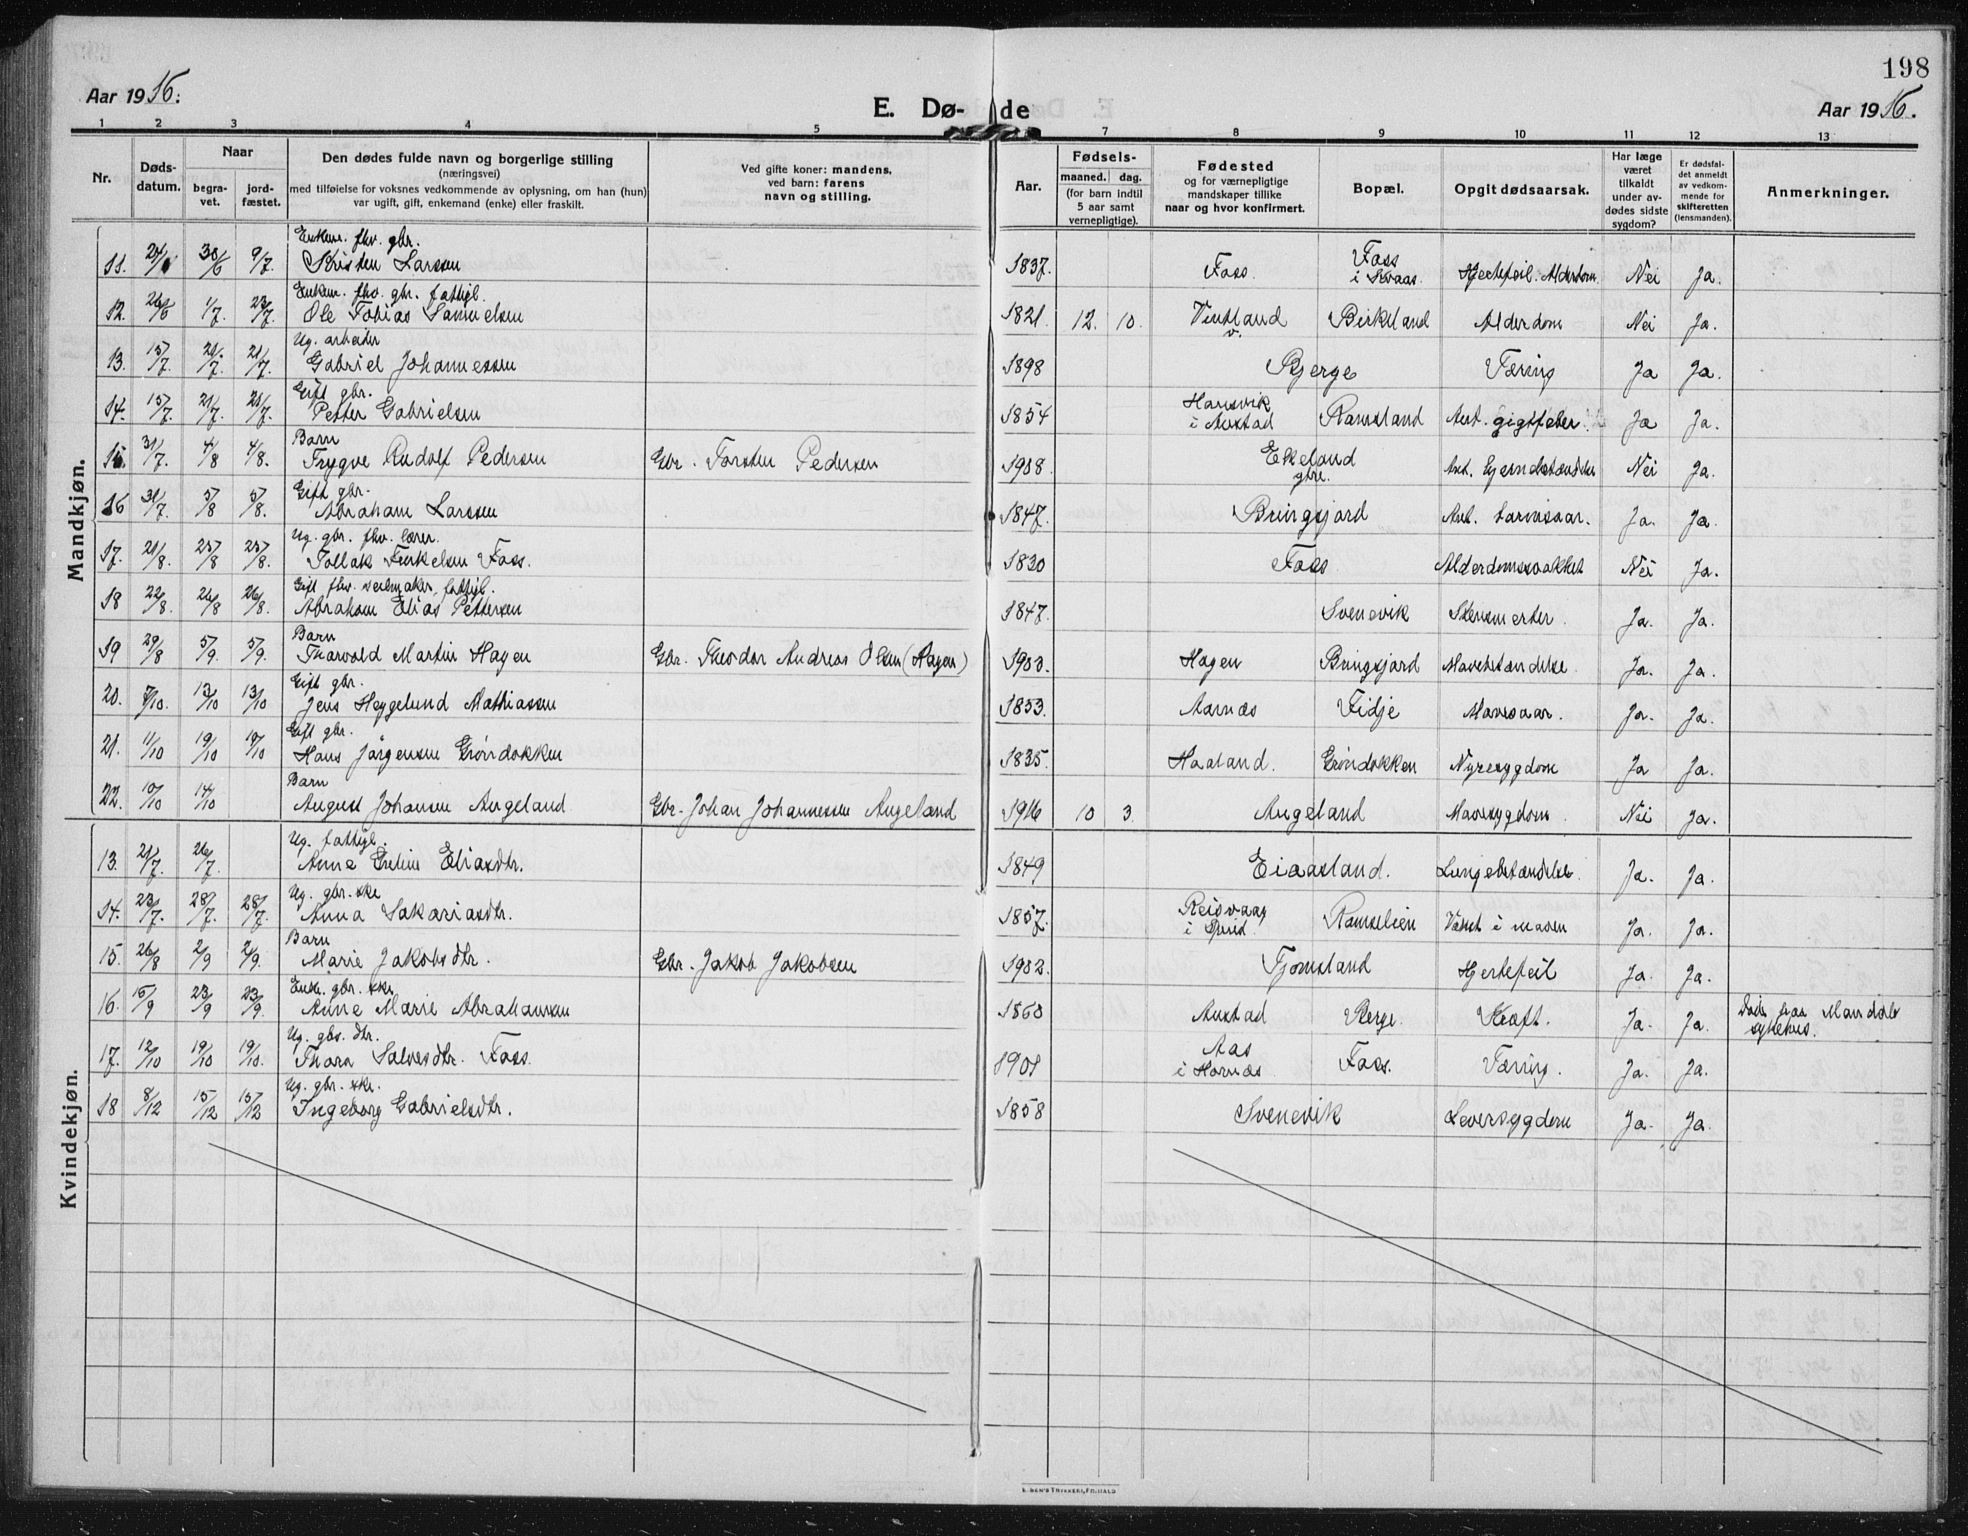 198
Aar 1916. E. Dø- de Aar 1916.
1 2 3 4 5 7 8 9 10 11 12 13
Nr. Døds-datum. Naar begra-vet. jord-fæstet. Den dødes fulde navn og borgerlige stilling (næringsvei) med tilføielse for voksnes vedkommende av oplysning, om han (hun) var ugift, gift, enkemand (enke) eller fraskilt. Ved gifte koner: mandens, ved barn: farens navn og stilling. Aar. Fødsels- maaned. dag. (for barn indtil 5 aar samt vernepligtige). Fødested og for værnepligtige mandskaper tillike naar og hvor konfirmert. Bopæl. Opgit dødsaarsak. Har læge været tilkaldt under av-dødes sidste sygdom? Er dødsfal-det anmeldt av vedkom-mende for skifteretten (lensmanden). Anmerkninger.
Mandkjøn.
11. 24/6 30/6 9/7. Enkem. fhv. gbr. Kristen Larssen 1837. Foss. Foss i Kvaas. Hjertefeil. Alderdom Nei Ja.
12. 26/6 1/7. 23/7. Enkem. fhv. gbr. fattigl. Ole Tobias Samuelsen 1821. 12. 10. Vintland v. Birkeland Alderdom Nei Ja.
13. 15/7. 21/7. 21/7. Ug. arbeider Gabriel Johannessen 1898 Bjerge Tæring Ja Ja.
14. 15/7. 21/7. 21/7. Gift gbr. Petter Gabrielsen 1854 Hansvik i Austad Ramsland Ant. gigtfeber Ja Ja.
15. 31/7. 4/8 4/8. Barn Trygve Rudolf Pedersen Gbr. Torsten Pedersen 1908. Ekeland gtre. Ant. hjernebetændelse Nei Ja.
16 31/7. 5/8 5/8. Gift gbr. Abraham Larssen 1847. Bringsjord Ant. Ja. Ja.
17. 21/8. 25/8 25/8. Ug. gbr. fhv. lærer. Tollak Terkelsen Foss. 1830 Foss Alderdomssvakhet Nei Ja.
18 22/8. 26/8 26/8. Gift fhv. seilmaker, fattigl. Abraham Elias Pettersen 1847. Svenevik Stensmerter. Ja. Ja.
19 29/8 5/9. 5/9. Barn Tharvold Martin Hagen Gbr. Theodor Andreas Olsen (Hagen) 1903. Hagen Bringsjord Mavebetændelse. Ja. Ja.
20. 7/10. 13/10 13/10 Gift gbr. Jens Heggelund Mathiassen 1853. Aarnæs Fidje Mavesaar. Ja. Ja.
21. 11/10 19/10 19/10 Gift gbr. Hans Jørgensen Grøndokken 1835. Haaland. Grøndokken Nyresygdom Ja Ja.
22. 10/10 14/10 Barn August Johansen Augeland Gbr. Johan Johannessen Augeland 1916 10 3. Augeland Mavesygdom. Nei Ja.
Kvindekjøn.
13. 21/7. 26/7. Ug. fattigl. Anne Eliasdtr. 1849 Eiaasland. Lungebetændelse. Ja. Ja.
14. 23/7. 28/7. 28/7. Ug. gbr. ske Anna Sakariasdtr. 1857. i Spind. Ramsleien Vækst i maven Ja. Ja.
15. 26/8 2/9 2/9. Barn Marie Jakobsdtr. Gbr. Jakob Jakobsen 1902. Fjomsland Hjertefeil Ja. Ja.
16. 15/9 23/9 23/9. Enke. gbr. ske Anne Marie Abrahamsen 1860 Austad Berge. Kræft. Ja. Ja. Døde paa Mandals sykehus.
17. 12/10 19/10 19/10. Ug. gbs. dtr. Thora Salvesdtr. Foss. 1901 Aas i Hornæs Foss. Tæring. Ja. Ja.
18 8/12 15/12 15/12 Ug. gbr. ske. Ingeborg Gabrielsdtr. 1858 Svenevik Leversygdom Ja. Ja.